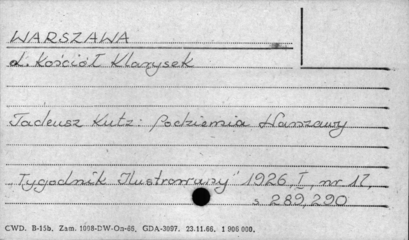 WARSZAWA
d. Kościół Klarysek
Tadeusz Kutz: Podziemia Warszawy
„Tygodnik Ilustrowany" 1926, I, nr 17,
s 289, 290
CWD. B-15b. Zam. 1098-DW-On-66. GDA-3097. 23.11.66. 1 906 000.